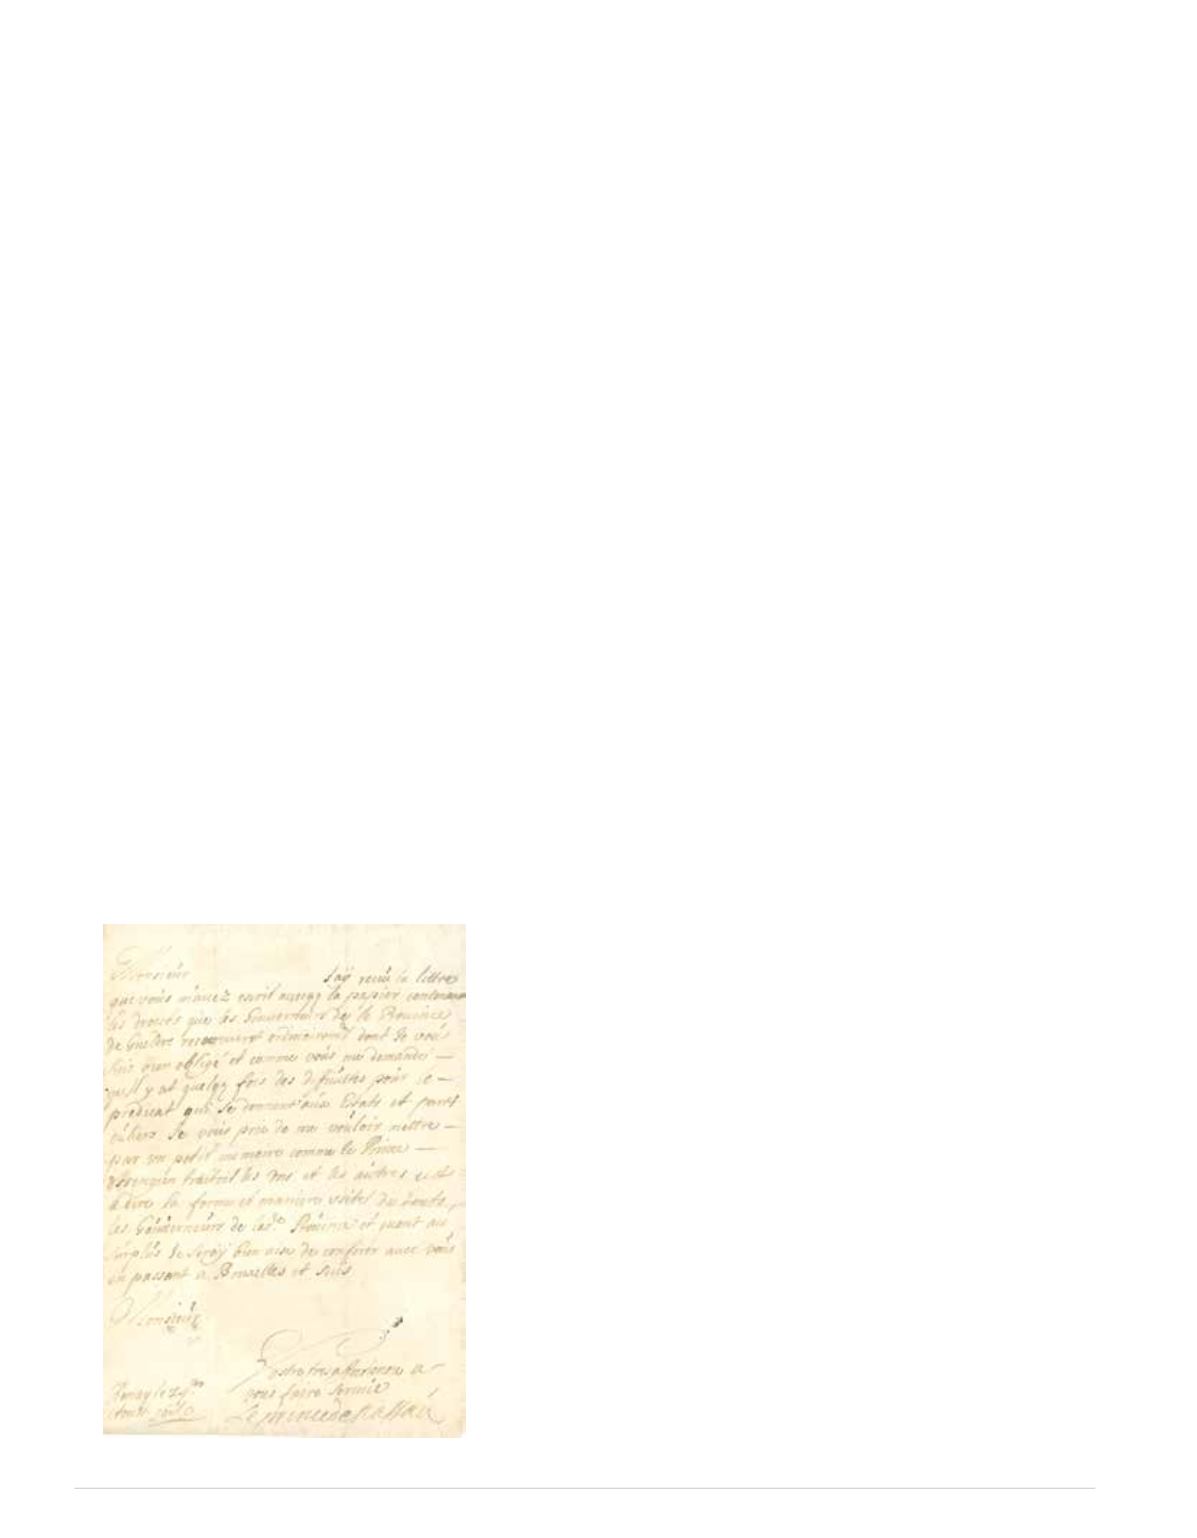 Monsieur
J'aÿ receü la lettre
que vous m'auez escrit auecqz le papier contenant
les droicts que les Gouuerneurs de la Prouince
de Gueldre recouurent ordinairement dont Je vous
suis bien obligé et comme vous me demandez
qu'il y at quelqz fois des dificultes pour le
predicat qui se donnent aux Estats et parti
culiers Je vous prie de me vouloir mettre
par un petit memoire comme le Prince
traitoit les uns et les autres
a dire la forme et maniere de touts
les Gouuerneurs de lad.e Prouince et quant au
surplus Je seraÿ bien aise de conferer auec vous
en passant a Bruxelles et suis
Monsieur
Vostre tres affectionné a
vous faire seruice
Le prince de Nassau
Renay le 29